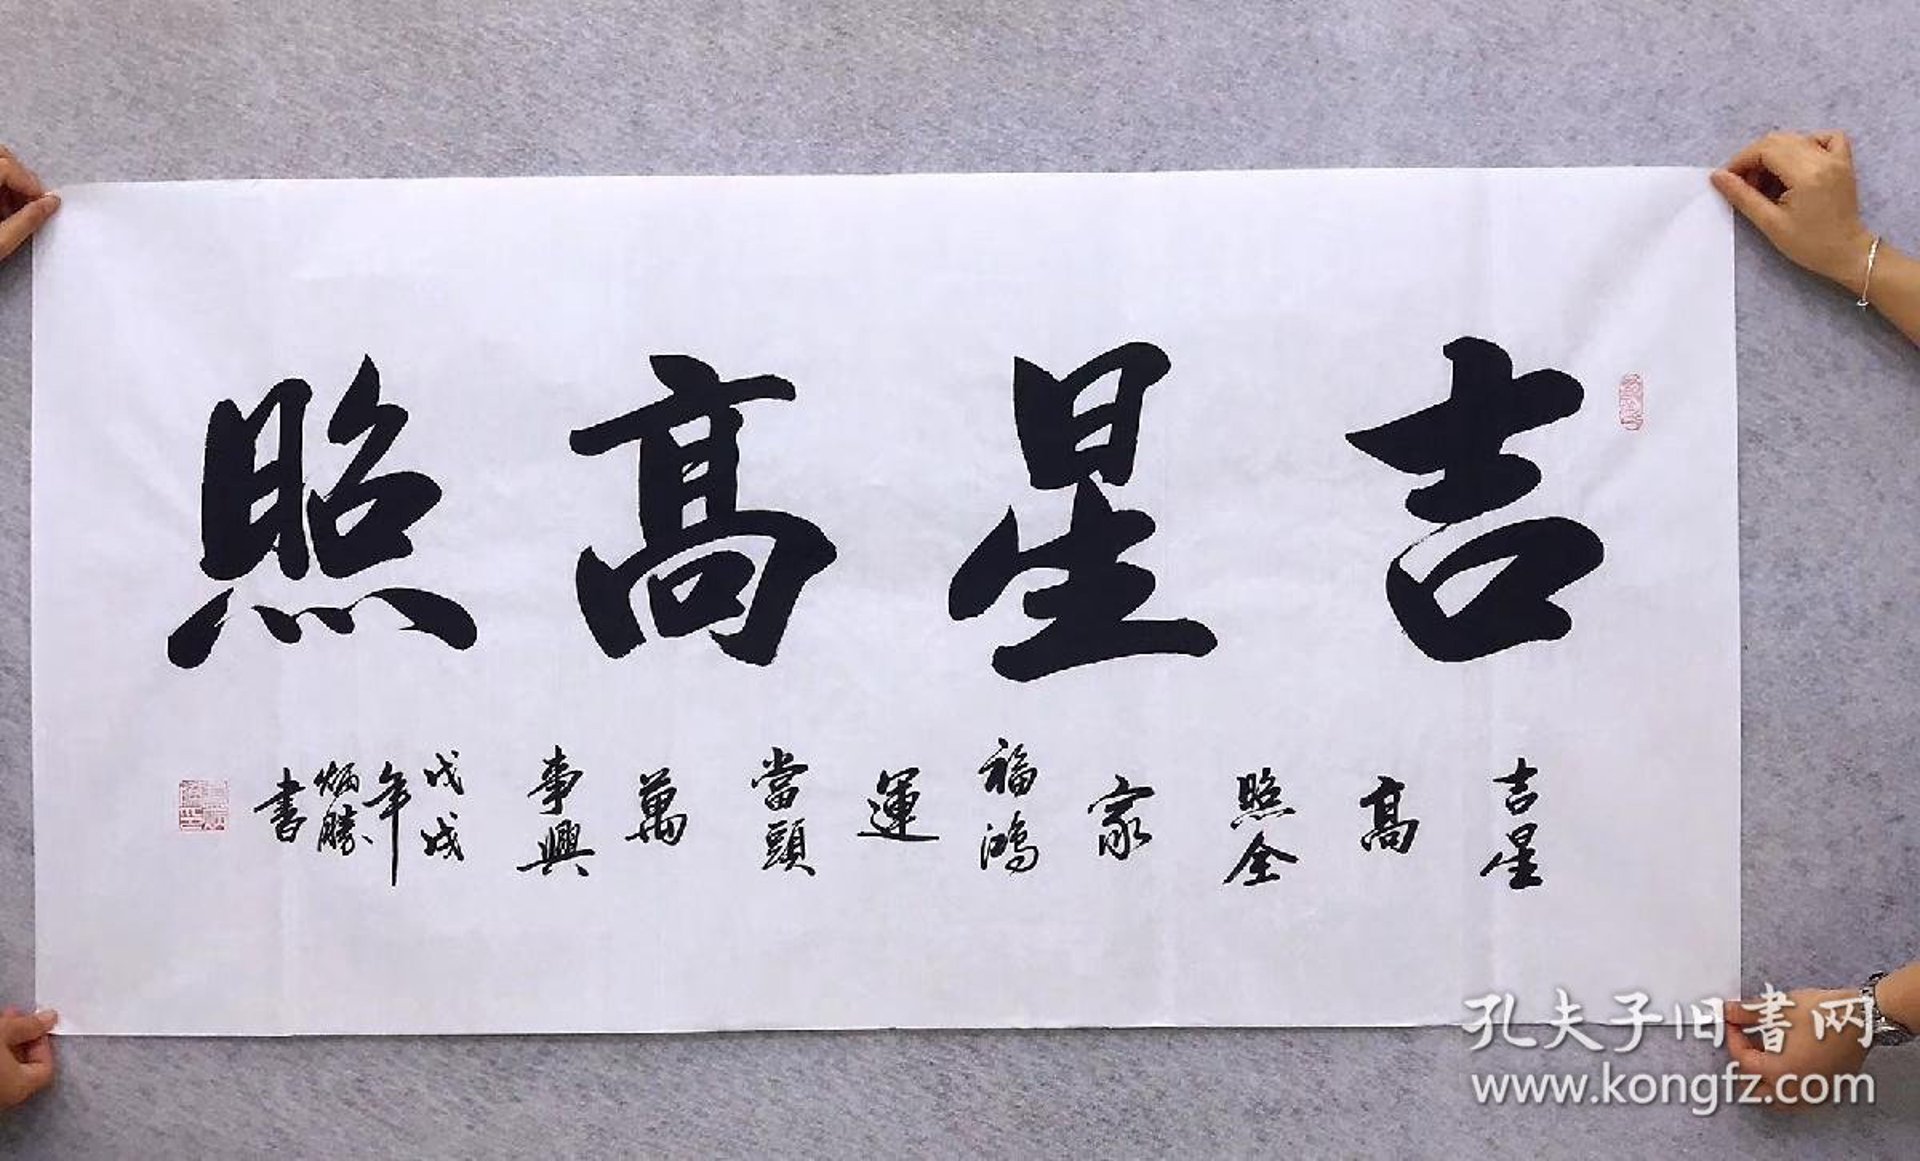 吉星高照
吉星
高
照全
家
福鴻
運
當頭
萬
事興
戊戌
年
炳勝
書
孔夫子旧书网
www.kongfz.com